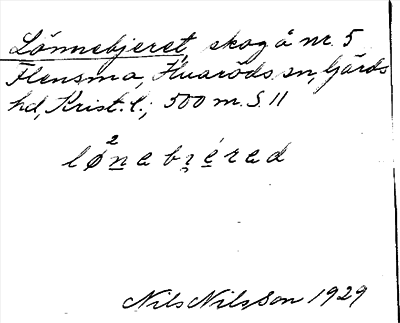 Lönnebjeret, skog å nr. 5
Flensma, Huaröds sn, Gärds
hd, Krist. l.; 500 m. S. 11
lø²nabjérad
Nils Nilsson 1929